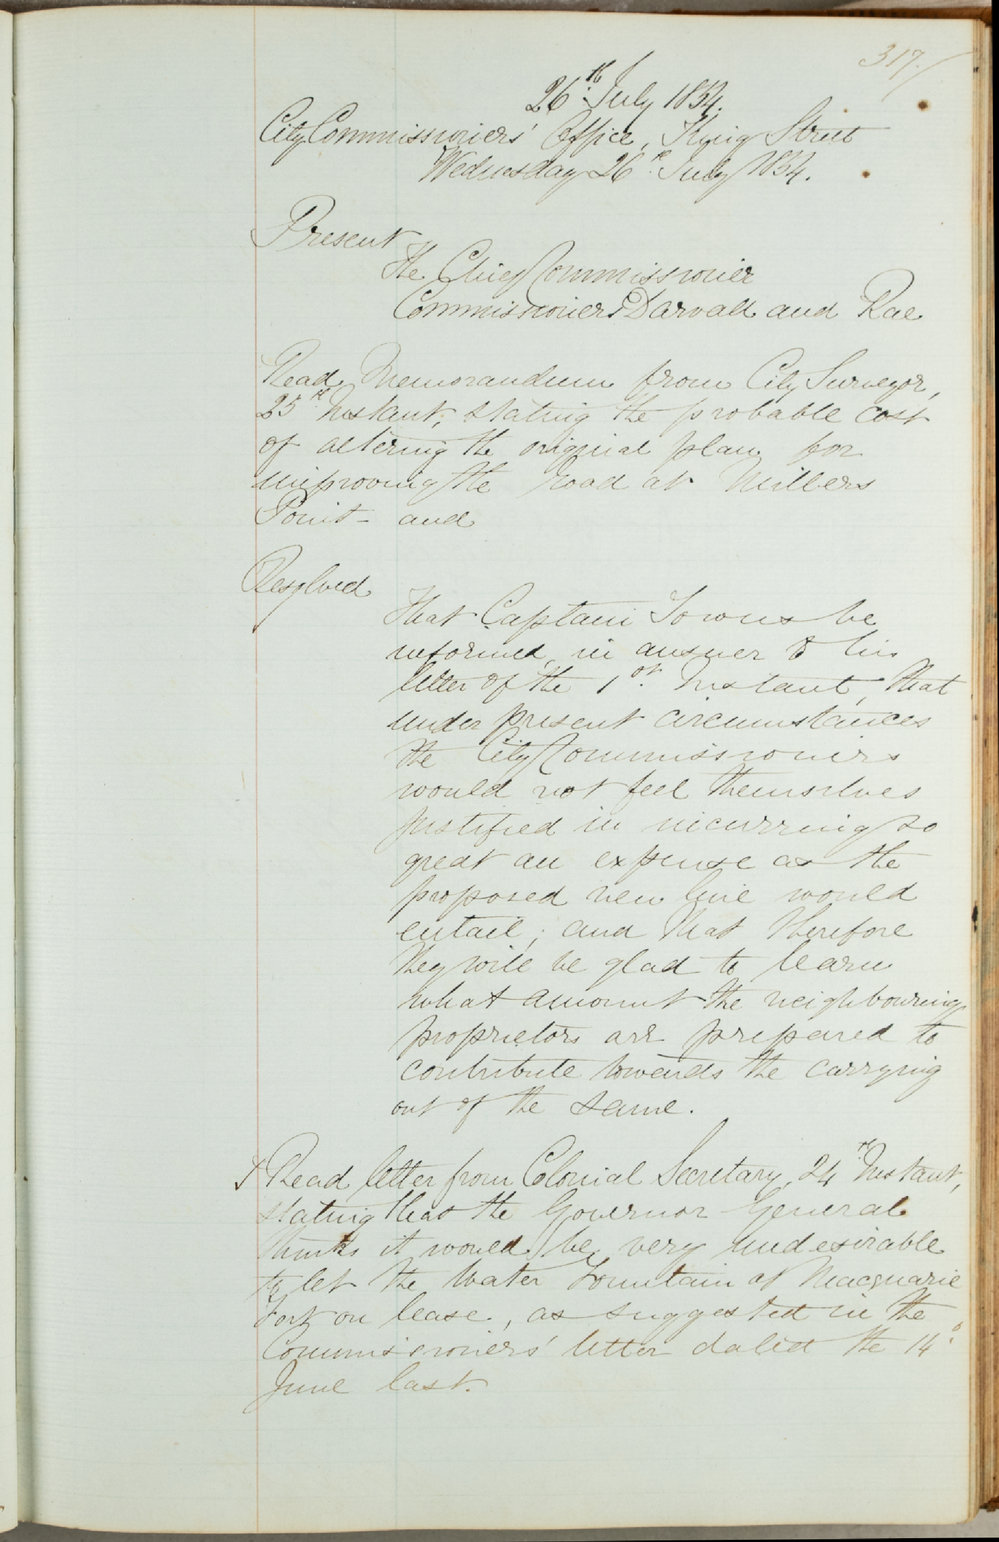 317.
26th July 1854.
City Commissioners' Office, King Street
Wednesday 26th July 1854.
Present
The Chief Commissioner
Commissioners Darvall and Rae
Read Memorandum from City Surveyor,
25th Instant, stating the probable cost
of altering the original plan for
improving the road at Millers
Point - and
Resolved
That Captain Towns be
informed, in answer to his
letter of the 1st. Instant, that
under present circumstances
the City Commissioners
would not feel themselves
justified in incurring so
great an expense as the
proposed new line would
entail; and that therefore
they will be glad to learn
what amount the neighbouring
proprietors are prepared to
contribute towards the carrying
out of the same.
Read letter from Colonial Secretary, 24th Instant,
stating that the Governor General
thinks it would be very undesirable
to let the Water Fountain at Macquarie
Fort on lease, as suggested in the
Commissioners' letter dated the 14th
June last.